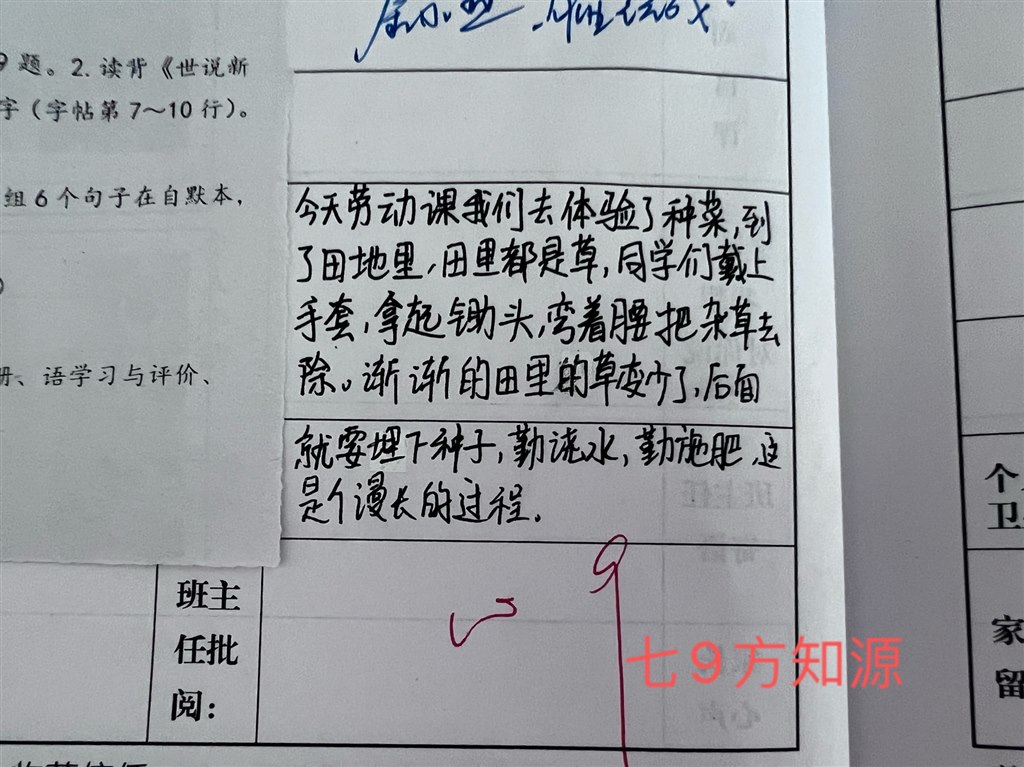 9题。2.读背《世说新
字（字帖第7～10行）。
组6个句子在自默本，
册、语学习与评价、
今天劳动课我们去体验了种菜,到
了田地里,田里都是草,同学们戴上
手套,拿起锄头,弯着腰把杂草去
除。渐渐的田里的草变少了,后面
就要埋下种子,勤浇水,勤施肥,这
是个漫长的过程.
班主
任批
阅：
七9方知源
个
卫
家
留